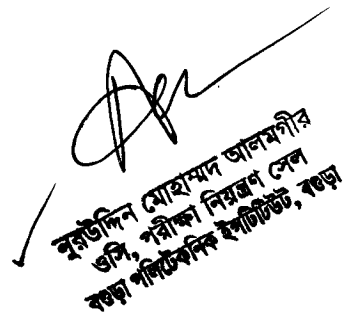 নুরউদ্দিন মোহাম্মদ আলমগীর
ওসি, পরীক্ষা নিয়ন্ত্রণ সেল
বগুড়া পলিটেকনিক ইনস্টিটিউট, বগুড়া